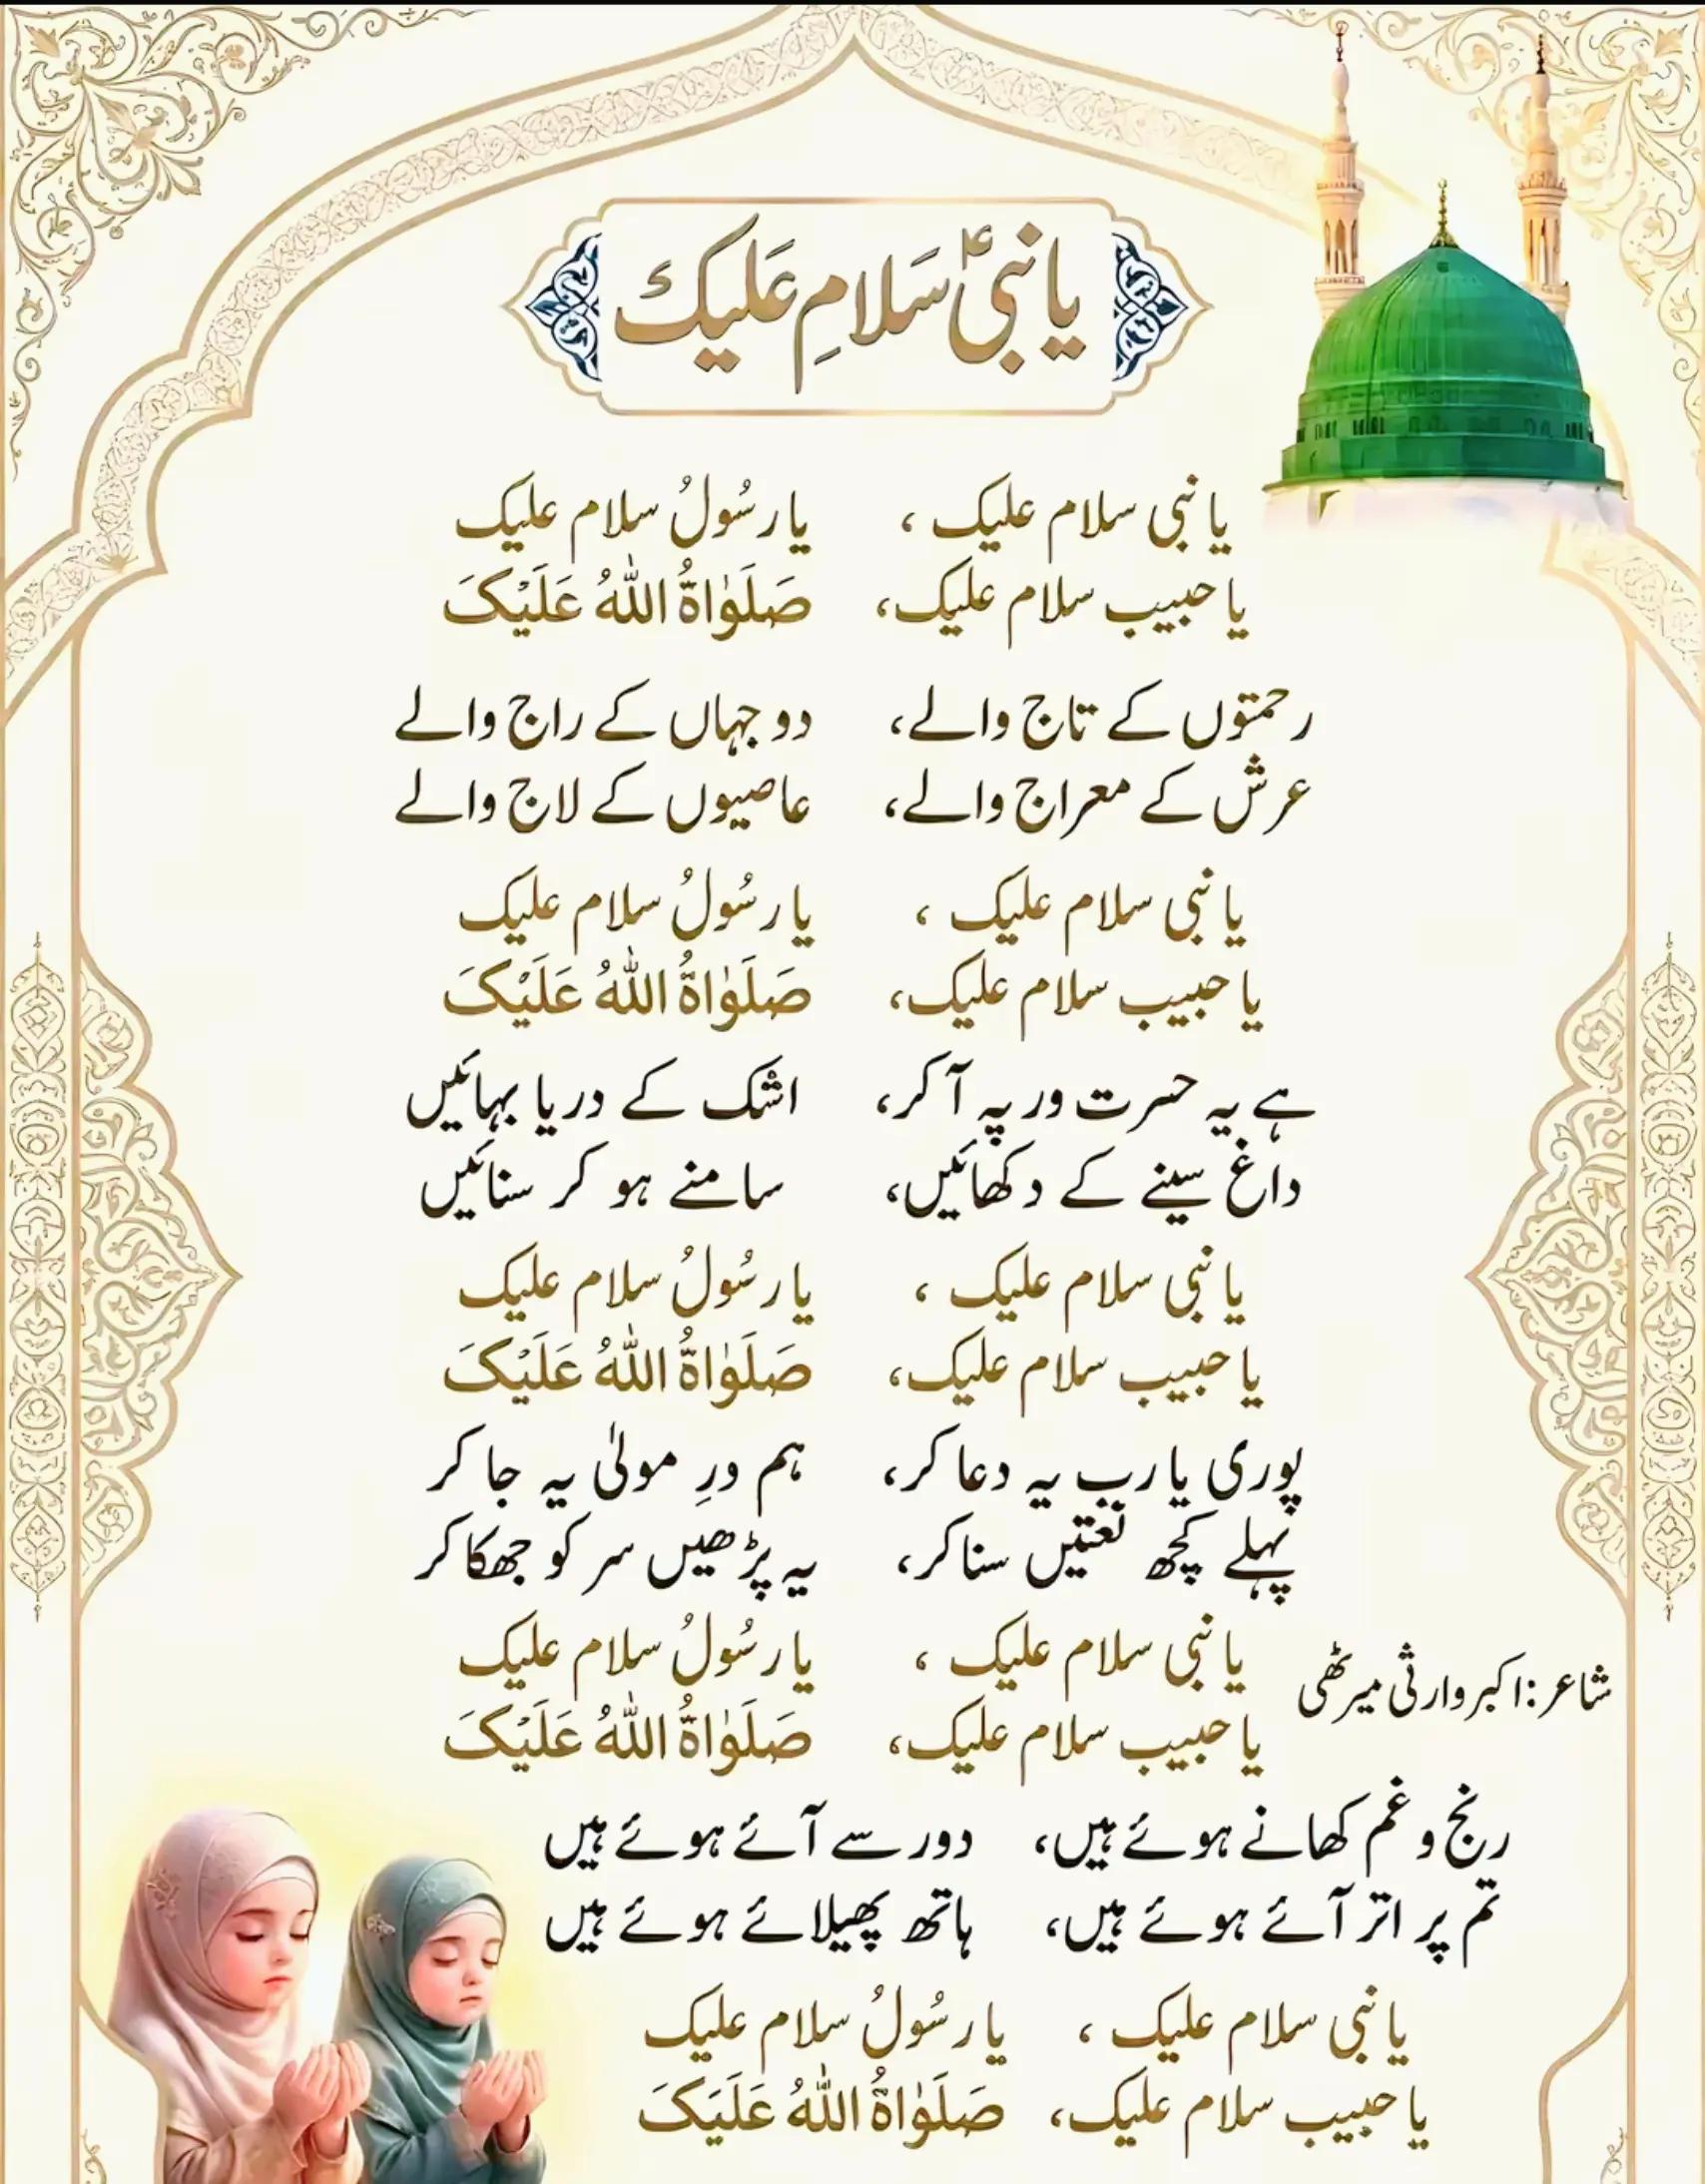 یا نبیؑ سَلامِ عَلیک
یا نبی سلام علیک ، یا رسُولُ سلام علیک
یا حبیب سلام علیک، صَلَوٰاةُ اللّٰهُ عَلَیْکَ
رحمتوں کے تاج والے، دو جہاں کے راج والے
عرش کے معراج والے، عاصیوں کے لاج والے
یا نبی سلام علیک ، یا رسُولُ سلام علیک
یا حبیب سلام علیک، صَلَوٰاةُ اللّٰهُ عَلَیْکَ
ہے یہ حسرت در پہ آ کر، اشک کے دریا بہائیں
داغ سینے کے دکھائیں، سامنے ہو کر سنائیں
یا نبی سلام علیک ، یا رسُولُ سلام علیک
یا حبیب سلام علیک، صَلَوٰاةُ اللّٰهُ عَلَیْکَ
پوری یا رب یہ دعا کر، ہم درِ مولیٰ یہ جا کر
پہلے کچھ نعتیں سنا کر، یہ پڑھیں سر کو جھکا کر
یا نبی سلام علیک ، یا رسُولُ سلام علیک
شاعر: اکبر وارثی میرٹھی
یا حبیب سلام علیک، صَلَوٰاةُ اللّٰهُ عَلَیْکَ
رنج و غم کھانے ہوئے ہیں، دور سے آئے ہوئے ہیں
تم پر اتر آئے ہوئے ہیں، ہاتھ پھیلائے ہوئے ہیں
یا نبی سلام علیک ، یا رسُولُ سلام علیک
یا حبیب سلام علیک، صَلَوٰاةُ اللّٰهُ عَلَیَکَ